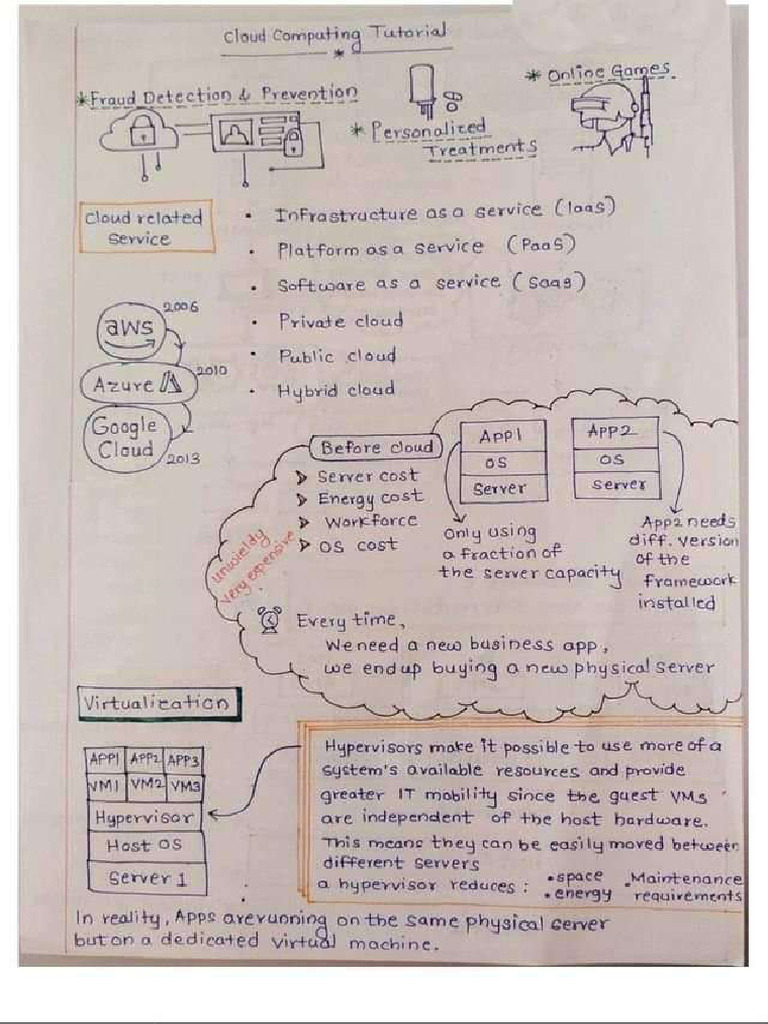 Cloud Computing Tutorial
* Fraud Detection & Prevention
* Personalized
Treatments
* Online Games
Cloud related
service
• Infrastructure as a service (Iaas)
• Platform as a service (Paas)
• Software as a service (Saas)
• Private cloud
• Public cloud
• Hybrid cloud
aws 2006
Azure 2010
Google
Cloud 2013
Before cloud
➤ Server cost
➤ Energy cost
➤ Workforce
➤ OS cost
unwieldy
very expensive
App1
OS
Server
App2
OS
Server
Only using
a fraction of
the server capacity
App2 needs
diff. version
of the
framework
installed
Every time,
We need a new business app,
we end up buying a new physical server
Virtualization
APP1 APP2 APP3
VM1 VM2 VM3
Hypervisor
Host OS
Server 1
Hypervisors make it possible to use more of a
system's available resources and provide
greater IT mobility since the guest VMs
are independent of the host hardware.
This means they can be easily moved between
different servers
a hypervisor reduces: •space •Maintenance
•energy requirements
In reality, Apps are running on the same physical server
but on a dedicated virtual machine.